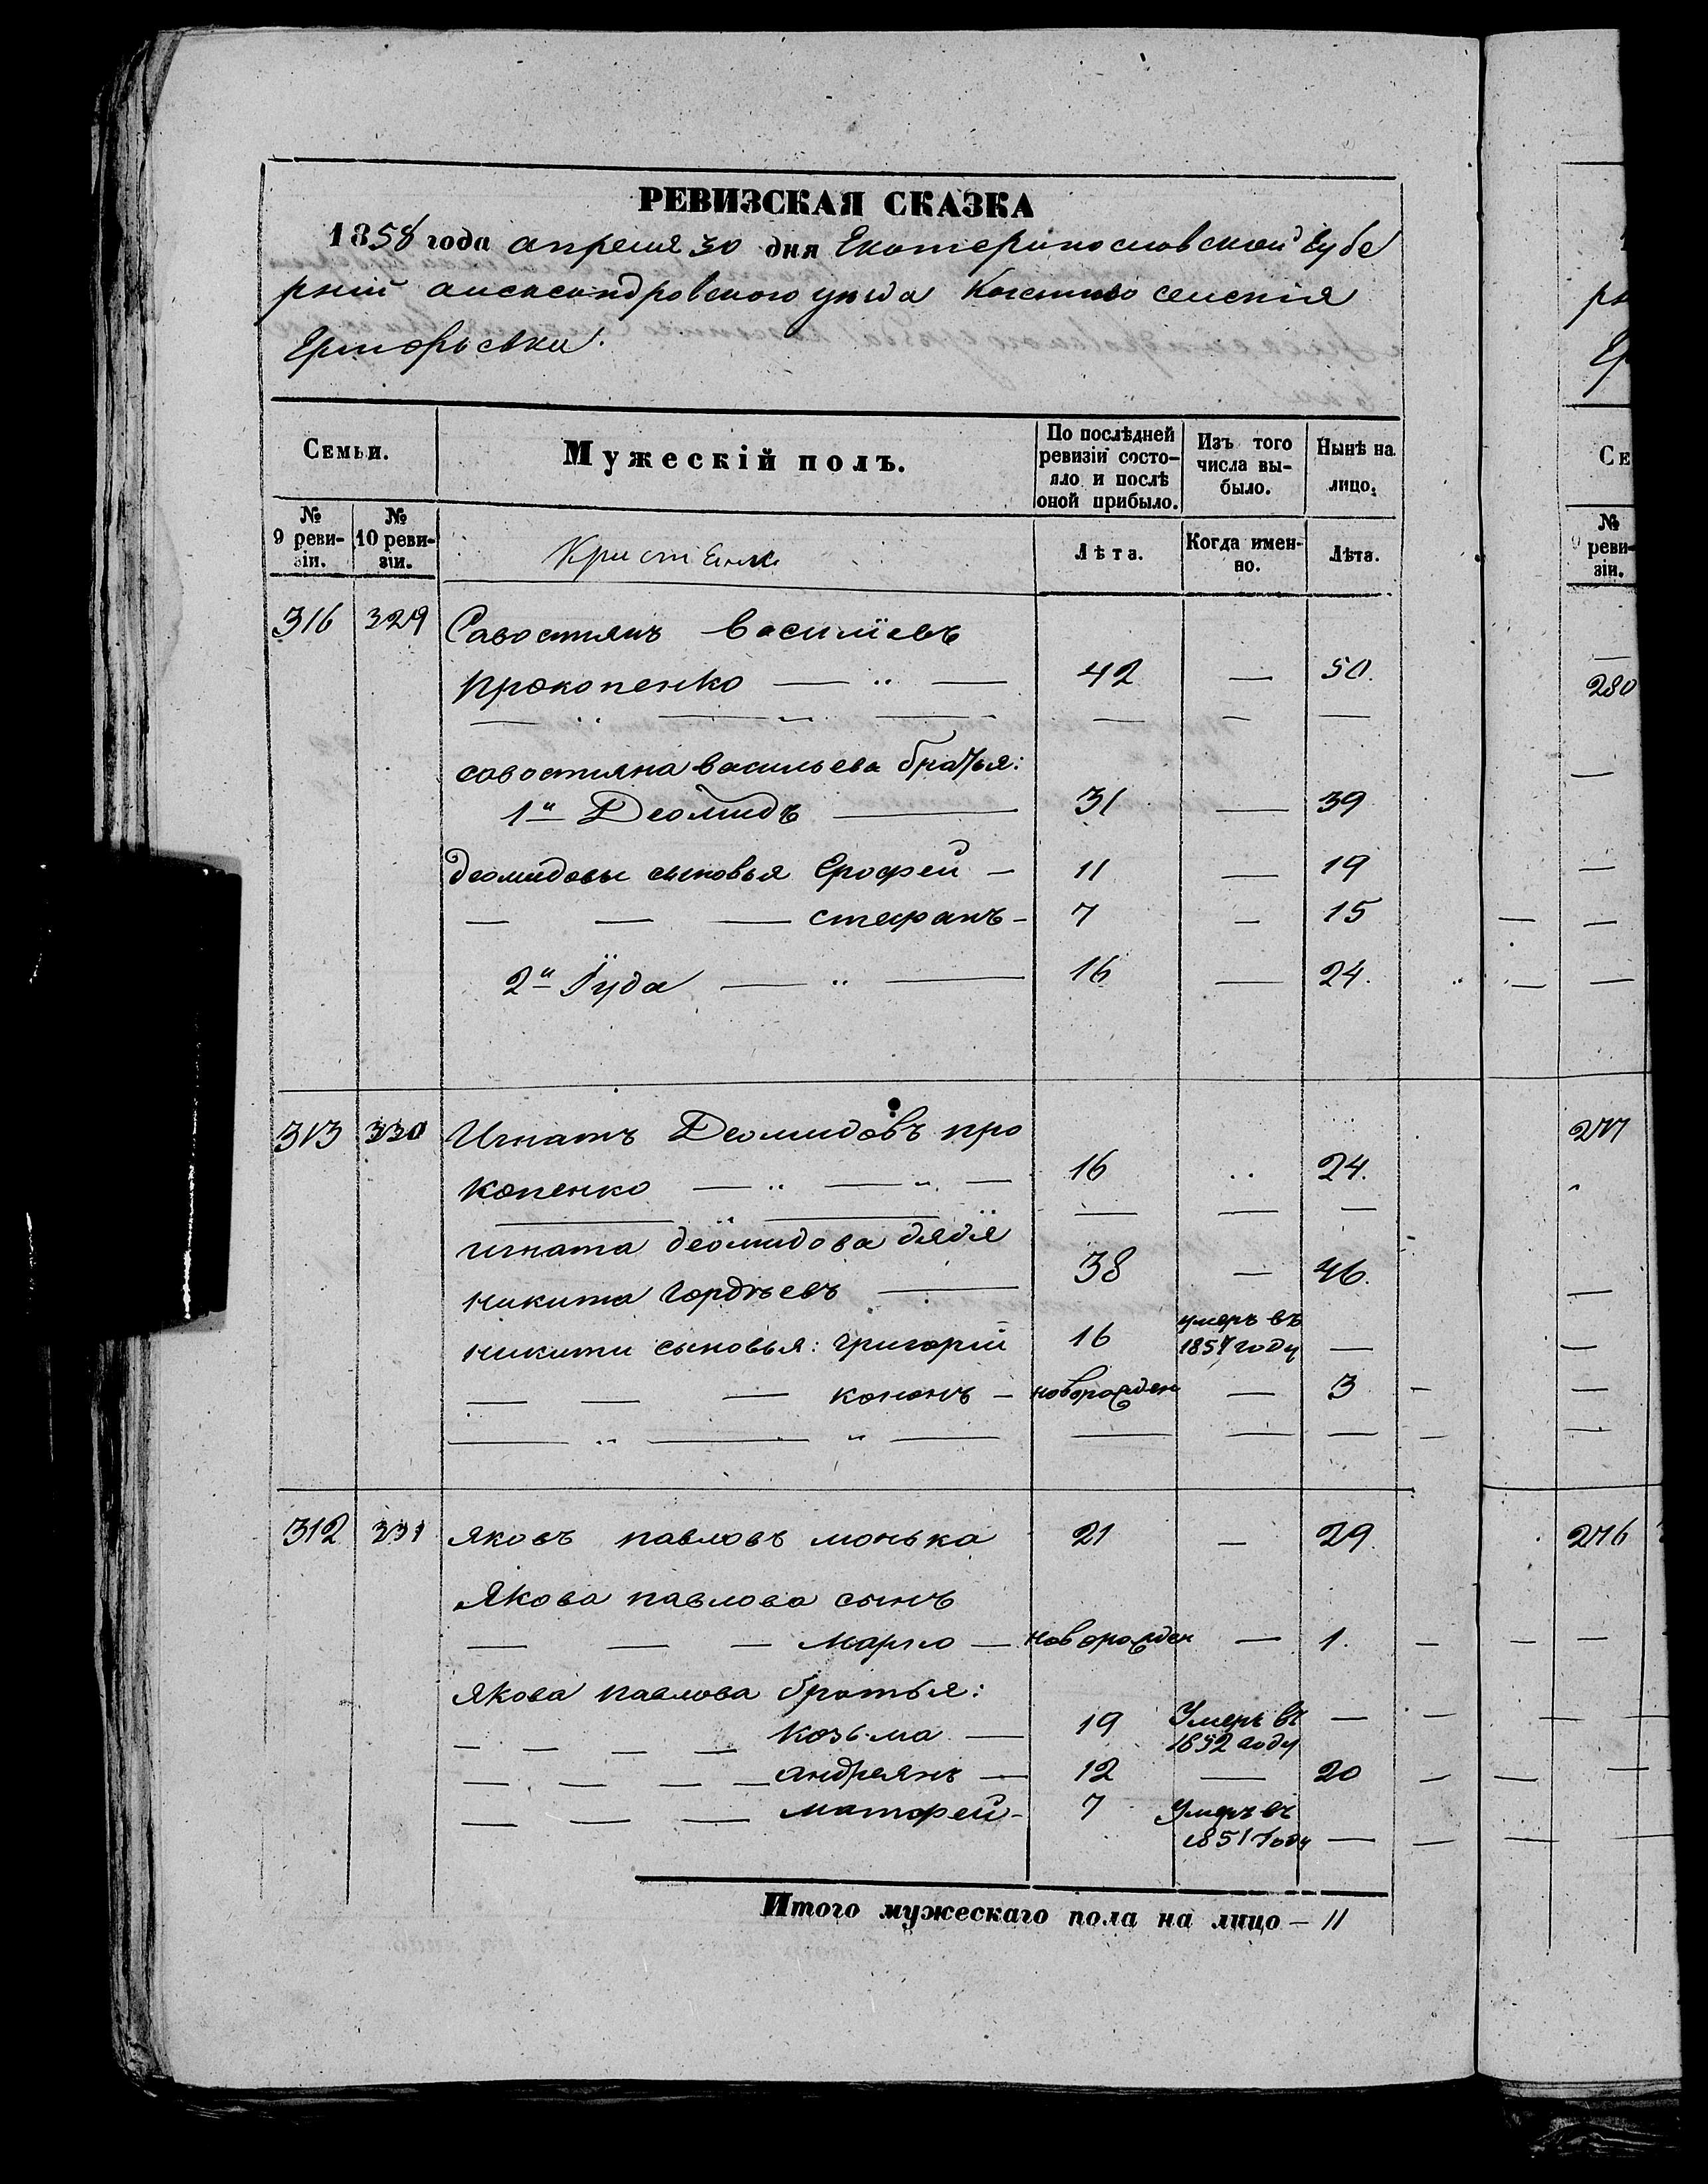 РЕВИЗСКАЯ СКАЗКА
1858 года апреля 30 дня Екатеринославской Губе
рнии александровского уезда Казенного селения
Григорьевки.
Семьи.
Мужескій полъ.
По послѣдней ревизіи состояло и послѣ оной прибыло.
Изъ того числа выбыло.
Нынѣ на лицо.
№ 9 ревизіи.
№ 10 ревизіи.
Лѣта.
Когда именно.
Лѣта.
316 329 Савостянъ Василіевъ
Прокопенко — " — 42 — 50.
савостяна васильева братья:
1й Деомидъ — 31 — 39
Деомидовы сыновья Ерофей — 11 — 19
— — — стефанъ — 7 — 15
2й Іуда — " — 16 — 24.
313 330 Игнатъ Деомидовъ про
копенко — " — " — 16 " 24.
игната деомидова дядя
никита Гордѣевъ — 38 — 46.
никиты сыновья: григорій 16 умеръ въ 1857 году —
— — — кононъ — новорожден — 3
312 331 яковъ павловъ монька 21 — 29.
Якова павлова сынъ
— — — Марко — новорожден — 1.
якова павлова братья:
— — — — Козьма — 19 Умеръ въ 1852 году —
— — — — андреянъ — 12 — 20
— — — — матфей — 7 Умеръ въ 1851 году —
Итого мужескаго пола на лицо — 11
рн
Се
№ ревизіи.
280
277
276